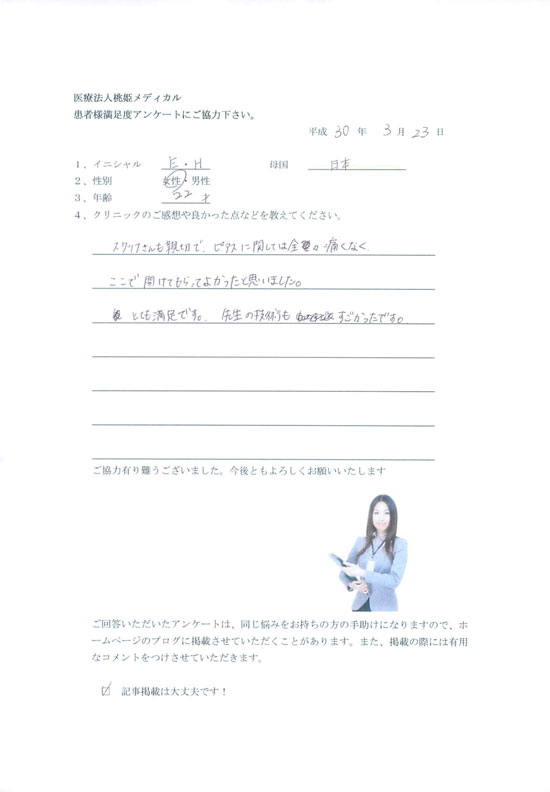 医療法人桃姫メディカル
患者様満足度アンケートにご協力下さい。
平成 30 年 3 月 23 日
1、イニシャル E・H 母国 日本
2、性別 女性・男性
3、年齢 22 才
4、クリニックのご感想や良かった点などを教えてください。
スタッフさんも親切で、ピアスに関しては全々痛くなく
ここで開けてもらってよかったと思いました。
とても満足です。先生の技術も すごかったです。
ご協力有り難うございました。今後ともよろしくお願いいたします
ご回答いただいたアンケートは、同じ悩みをお持ちの方の手助けになりますので、ホ
ームページのブログに掲載させていただくことがあります。また、掲載の際には有用
なコメントをつけさせていただきます。
☑ 記事掲載は大丈夫です！